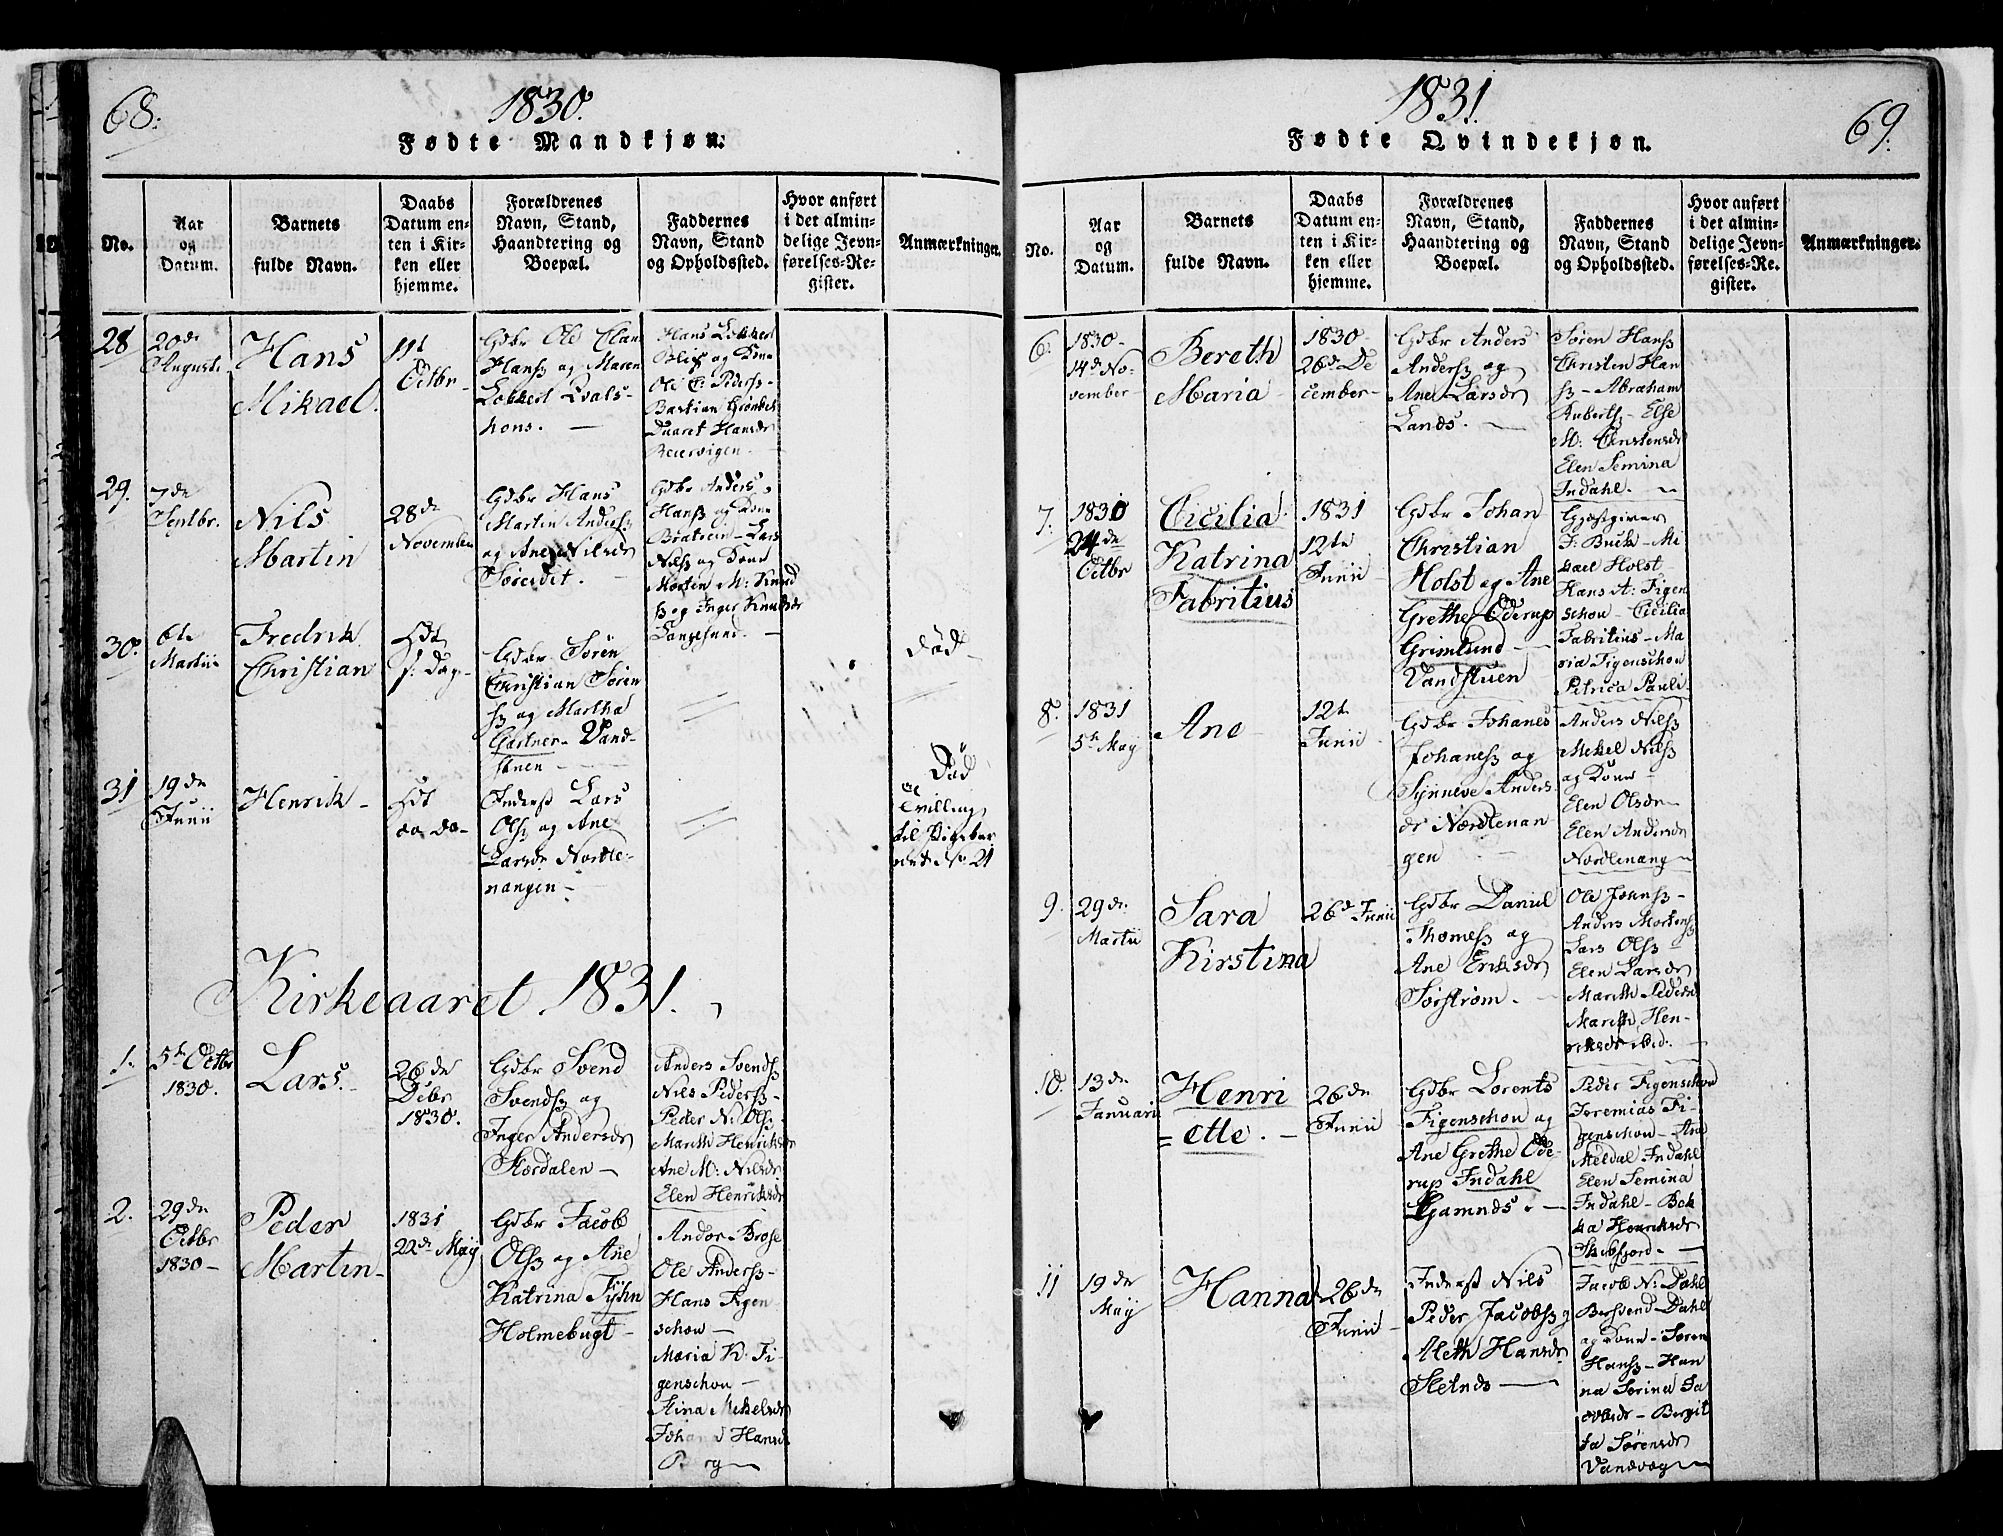 68.
1830.
Fødte Mandkjøn.
No.
Aar
og
Datum.
Barnets
fulde Navn.
Daabs
Datum en-
ten i Kir-
ken eller
hjemme.
Forældrenes
Navn, Stand,
Haandtering og
Boepæl.
Faddernes
Navn, Stand
og Opholdssted.
Hvor anført
i det almin-
delige Jevn-
førelses-Re-
gister.
Anmærkninger.
28
20de
Augusti
Hans
Mikael.
11t
Octbr
Gdbr Ole Clau
Hanss og Maren
Lokkert Evals-
hons.
Hans Lokkert
og Kone
Ole C: Peders
Bastian Grønbek
Hansdr
29.
7de
Septbr.
Nils
Martin
28de
November
Gdbr Hans
Martin Anderss
og Ane Nilsdr
Gdbr Anders
Hanss og Kone
Lars
Nilss og Kone
Morten M: Knud
ss og Inger Knudsdr
Langesund.
30.
6te
Martii
Fredrik
Christian
Hdt
s: Dag
Gdbr Søren
Christian Søren
ss og Martha
Gærtner Vand-
stuen
død
31
19de
Junii
Henrik
Hdt
Inderst Lars
Olss og Ane
Larsdr Nordle-
nangen
Død
er
Tvilling
til Pigebar
net No 21
Kirkeaaret 1831.
1.
5t Octbr
1830.
Lars.
26de
Debr
1830.
Gdbr Svend
Svendss og
Inger Andersdr
Stordalen
Anders Svendss
Nils Peders
Peder N: Olss
Mareth Henriksdr
Ane M: Nilsdr
Elen Henriksdr
2.
29de
Octbr
1830
Peder
Martin
1831
22de May
Gdbr Jacob
Olss og Ane
Katrina Fyhn
Holmebugt
Andor Brose
Ole Anderss
Hans Figen
schou
Maria K. Fi-
genschou
Stina Mekelsdr
Hansdr
1831
Fødte Qvindekjøn.
69.
No.
Aar
og
Datum.
Barnets
fulde Navn.
Daabs
Datum en-
ten i Kir-
ken eller
hjemme.
Forældrenes
Navn, Stand,
Haandtering og
Boepæl.
Faddernes
Navn, Stand
og Opholdssted.
Hvor anført
i det almin-
delige Jevn-
førelses-Re-
gister.
Anmærkninger.
6.
1830
14de No-
vember
Bereth
Maria
1830
26de De
cember
Gdbr Anders
Anderss og
Ane Larsdr
Lands.
Søren Hanss
Christen Han
ss - Abraham
Rubertss - Else
M: Christensdr
Elen Semina
Indahl.
7.
1830
24de
Octbr
Cicilia
Katrina
Fabritius
1831
12te
Junii
Gdbr Johan
Christian
Holst og Ane
Grethe Oderup
Grimlund
Vandstuen
Gjæstgiver
J: Buck - Mi
kael Holst
Hans A: Figen
schou - Cicilia
Fabritius - Ma
ria Figenschou
Petrica Pauli
8.
1831
5te May
Ane
12te
Junii
Gdbr Johanes
Johaness og
Synneve Anders
dr Nordlenan
gen
Anders Nilss
Mekel Nilss
og Kone
Elen Olsdr
Elen Andersdr
Nordlenang
9.
29de
Martii
Sara
Kirstina
26de Junii
Gdbr Daniel
Thomess og
Ane Eriksdr
Sørstrøm.
Ole Johnss
Anders Mortenss
Lars Olss
Elen Larsdr
Mareth Pedersdr
Mareth Hen-
riksdr ibid:
10.
13de
Januarii
Henri
=ette.
26de
Junii
Gdbr Lorents
Figenschou og
Ane Grethe Ode-
rup Indahl
Gamnes.
Peder Figenschou
Jeremias Fi-
genschou - Ane
Meldal Indahl
Elen Semina
Indahl - Bek
ka Henriksdr
Skibsfjord
11
19de
May
Hanna
26de
Junii
Inderst Nils
Peder Jacobss og
Aleth Hansdr
Sletnes
Jacob N: Dahl
Bersvend Dahl
og Kone - Søren
Hanss - Han
na Sørine Ja
cobsdr - Bergit
ta Sørensdr
Vandvog